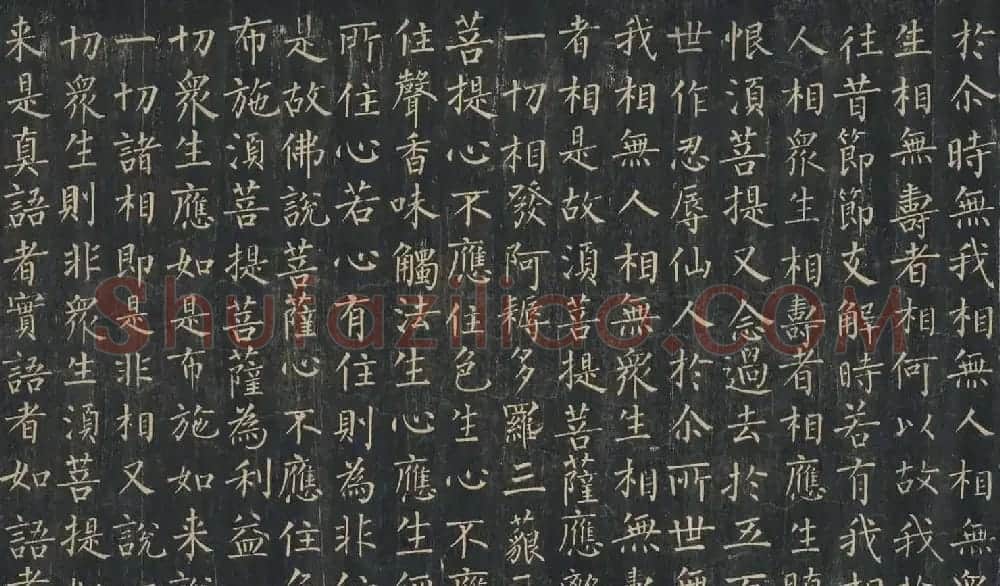 於尒時無我相無人相無
生相無壽者相何以故我
往昔節節支解時若有我
人相眾生相壽者相應生
恨須菩提又念過去於五
世作忍辱仙人於尒所世
我相無人相無眾生相無
者相是故須菩提菩薩應
一切相發阿耨多羅三藐
菩提心不應住色生心不
住聲香味觸法生心應生
所住心若心有住則為非
是故佛說菩薩心不應住
布施須菩提菩薩為利益
切眾生應如是布施如来
一切諸相即是非相又說
切眾生則非眾生須菩提
来是真語者實語者如語
Shufaziliao.COM